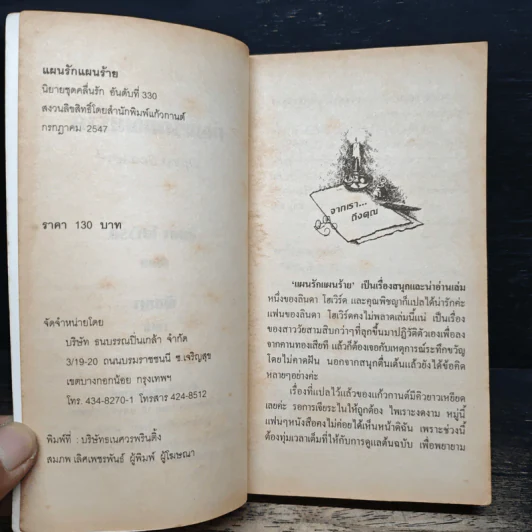 แผนรักแผนร้าย
นิยายชุดคลื่นรัก อันดับที่ 330
สงวนลิขสิทธิ์โดยสำนักพิมพ์แก้วกานต์
กรกฎาคม 2547
ราคา 130 บาท
จัดจำหน่ายโดย
บริษัท ธนบรรณปิ่นเกล้า จำกัด
3/19-20 ถนนบรมราชชนนี ซ.เจริญสุข
เขตบางกอกน้อย กรุงเทพฯ
โทร. 434-8270-1 โทรสาร 424-8512
พิมพ์ที่ : บริษัทธเนศวรพรินติ้ง
สมภพ เลิศเพชรพันธ์ ผู้พิมพ์ ผู้โฆษณา
จากเรา...
ถึงคุณ
'แผนรักแผนร้าย' เป็นเรื่องสนุกและน่าอ่านเล่ม
หนึ่งของลินดา โฮเวิร์ด และคุณพิชญาก็แปลได้น่ารักค่ะ
แฟนของลินดา โฮเวิร์ดคงไม่พลาดเล่มนี้แน่ เป็นเรื่อง
ของสาววัยสามสิบกว่าๆที่ลุกขึ้นมาปฏิวัติตัวเองเพื่อลง
จากคานทองเสียที แล้วก็ต้องเจอกับเหตุการณ์ระทึกขวัญ
โดยไม่คาดฝัน นอกจากสนุกตื่นเต้นแล้วยังได้ข้อคิด
หลายๆอย่างค่ะ
เรื่องที่แปลไว้แล้วของแก้วกานต์มีคิวยาวเหยียด
เลยค่ะ รอการเจียระไนให้ถูกต้อง ไพเราะงดงาม หมู่นี้
แฟนๆหนังสือคงไม่ค่อยได้เห็นหน้าดิฉัน เพราะช่วงนี้
ต้องทุ่มเวลาเต็มที่ให้กับการดูแลต้นฉบับ เพื่อพยายาม